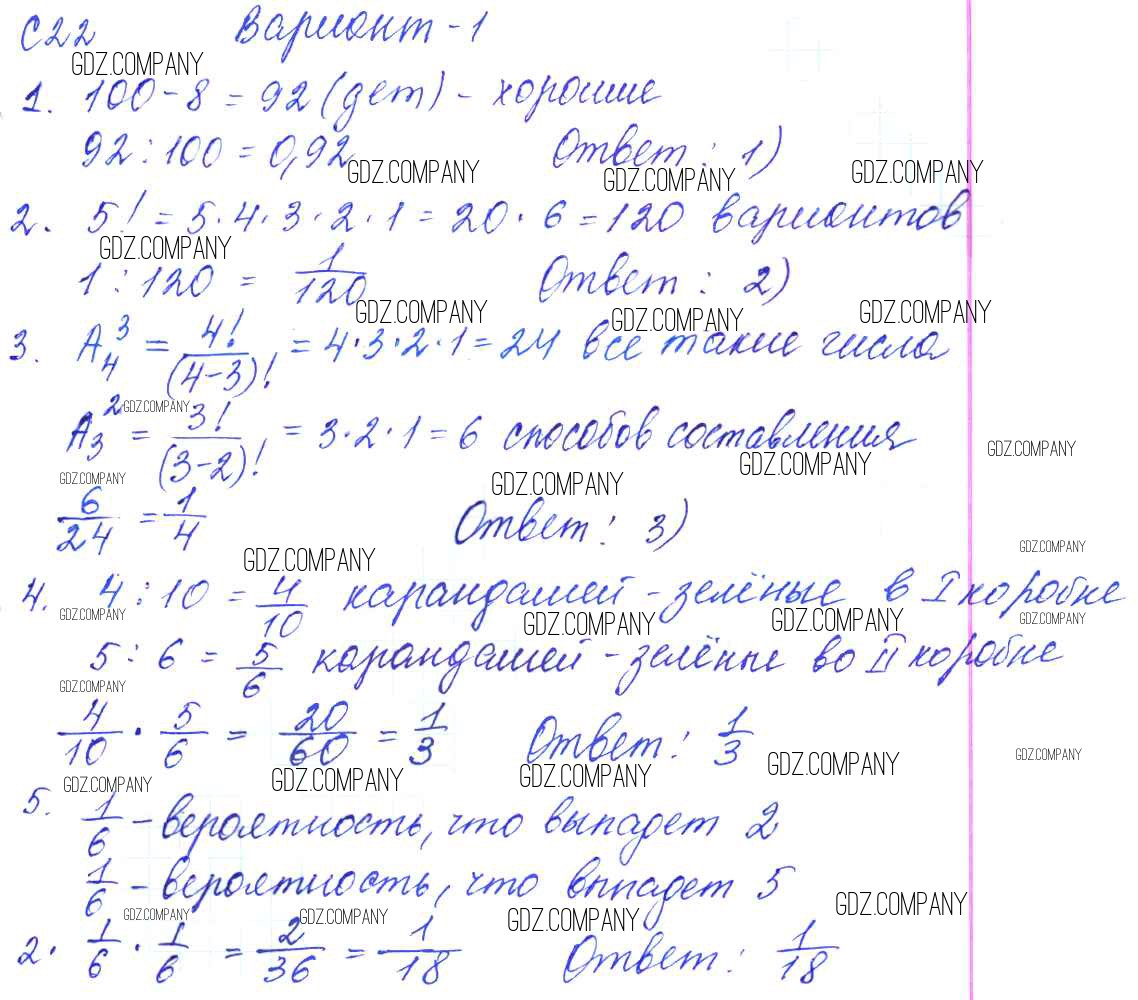 С22 Вариант - 1
GDZ.COMPANY
1. 100 - 8 = 92 (дет) - хорошие
92 : 100 = 0,92 Ответ : 1)
GDZ.COMPANY GDZ.COMPANY GDZ.COMPANY
2. 5! = 5 · 4 · 3 · 2 · 1 = 20 · 6 = 120 вариантов
GDZ.COMPANY
1 : 120 = 1/120 Ответ : 2)
GDZ.COMPANY GDZ.COMPANY GDZ.COMPANY
3. A₄³ = 4!/(4-3)! = 4·3·2·1 = 24 все такие числа
GDZ.COMPANY
A₃² = 3!/(3-2)! = 3·2·1 = 6 способов составления
GDZ.COMPANY GDZ.COMPANY GDZ.COMPANY GDZ.COMPANY
6/24 = 1/4 Ответ : 3)
GDZ.COMPANY GDZ.COMPANY
4. 4 : 10 = 4/10 карандашей - зелёные в I коробке
GDZ.COMPANY GDZ.COMPANY GDZ.COMPANY GDZ.COMPANY
5 : 6 = 5/6 карандашей - зелёные во II коробке
GDZ.COMPANY
4/10 · 5/6 = 20/60 = 1/3 Ответ : 1/3
GDZ.COMPANY GDZ.COMPANY GDZ.COMPANY GDZ.COMPANY GDZ.COMPANY
5. 1/6 - вероятность, что выпадет 2
1/6 - вероятность, что выпадет 5
GDZ.COMPANY GDZ.COMPANY GDZ.COMPANY GDZ.COMPANY
2 · 1/6 · 1/6 = 2/36 = 1/18 Ответ : 1/18